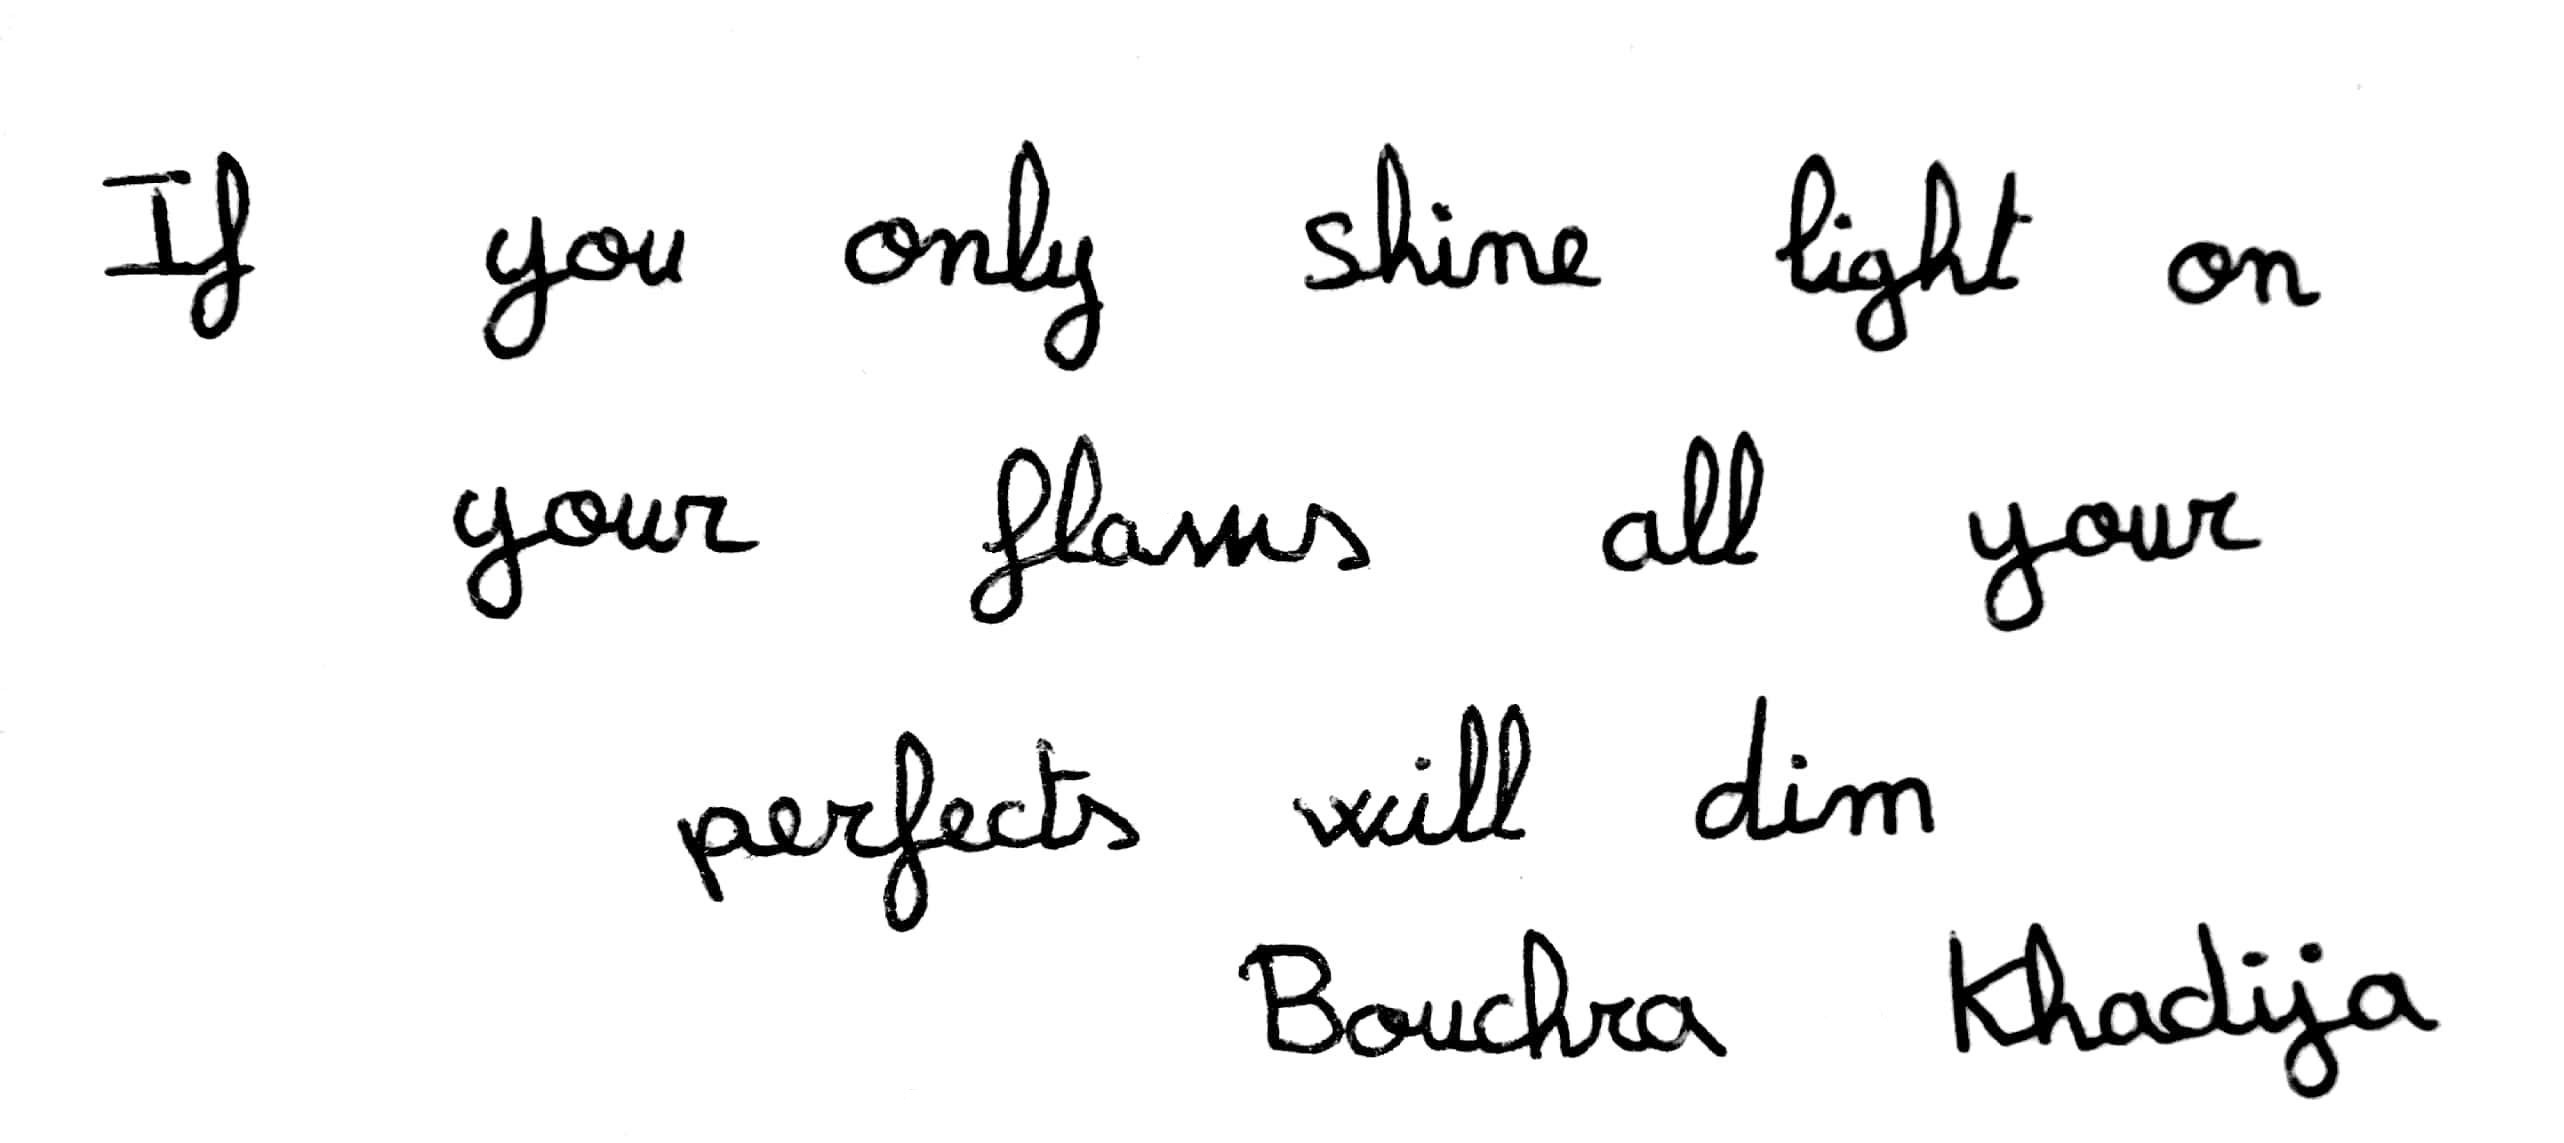 If you only shine light on
your flaws all your
perfects will dim
Bouchra Khadija